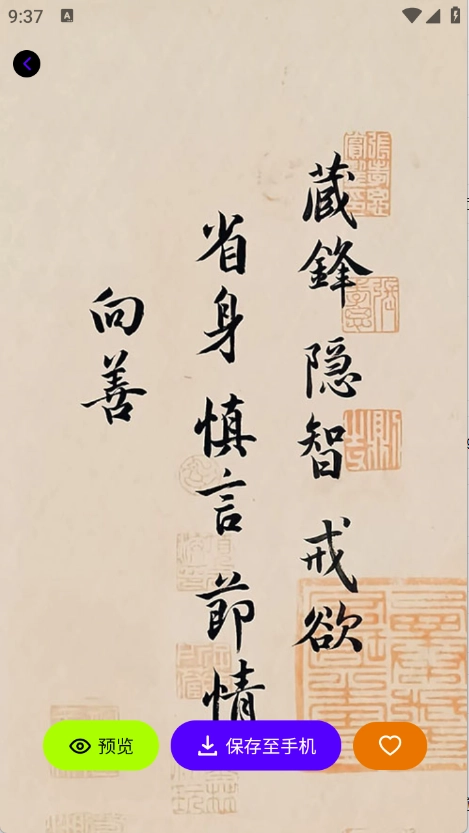 9:37
A
藏鋒 隐智 戒欲
省身 慎言 節情
向善
预览
保存至手机